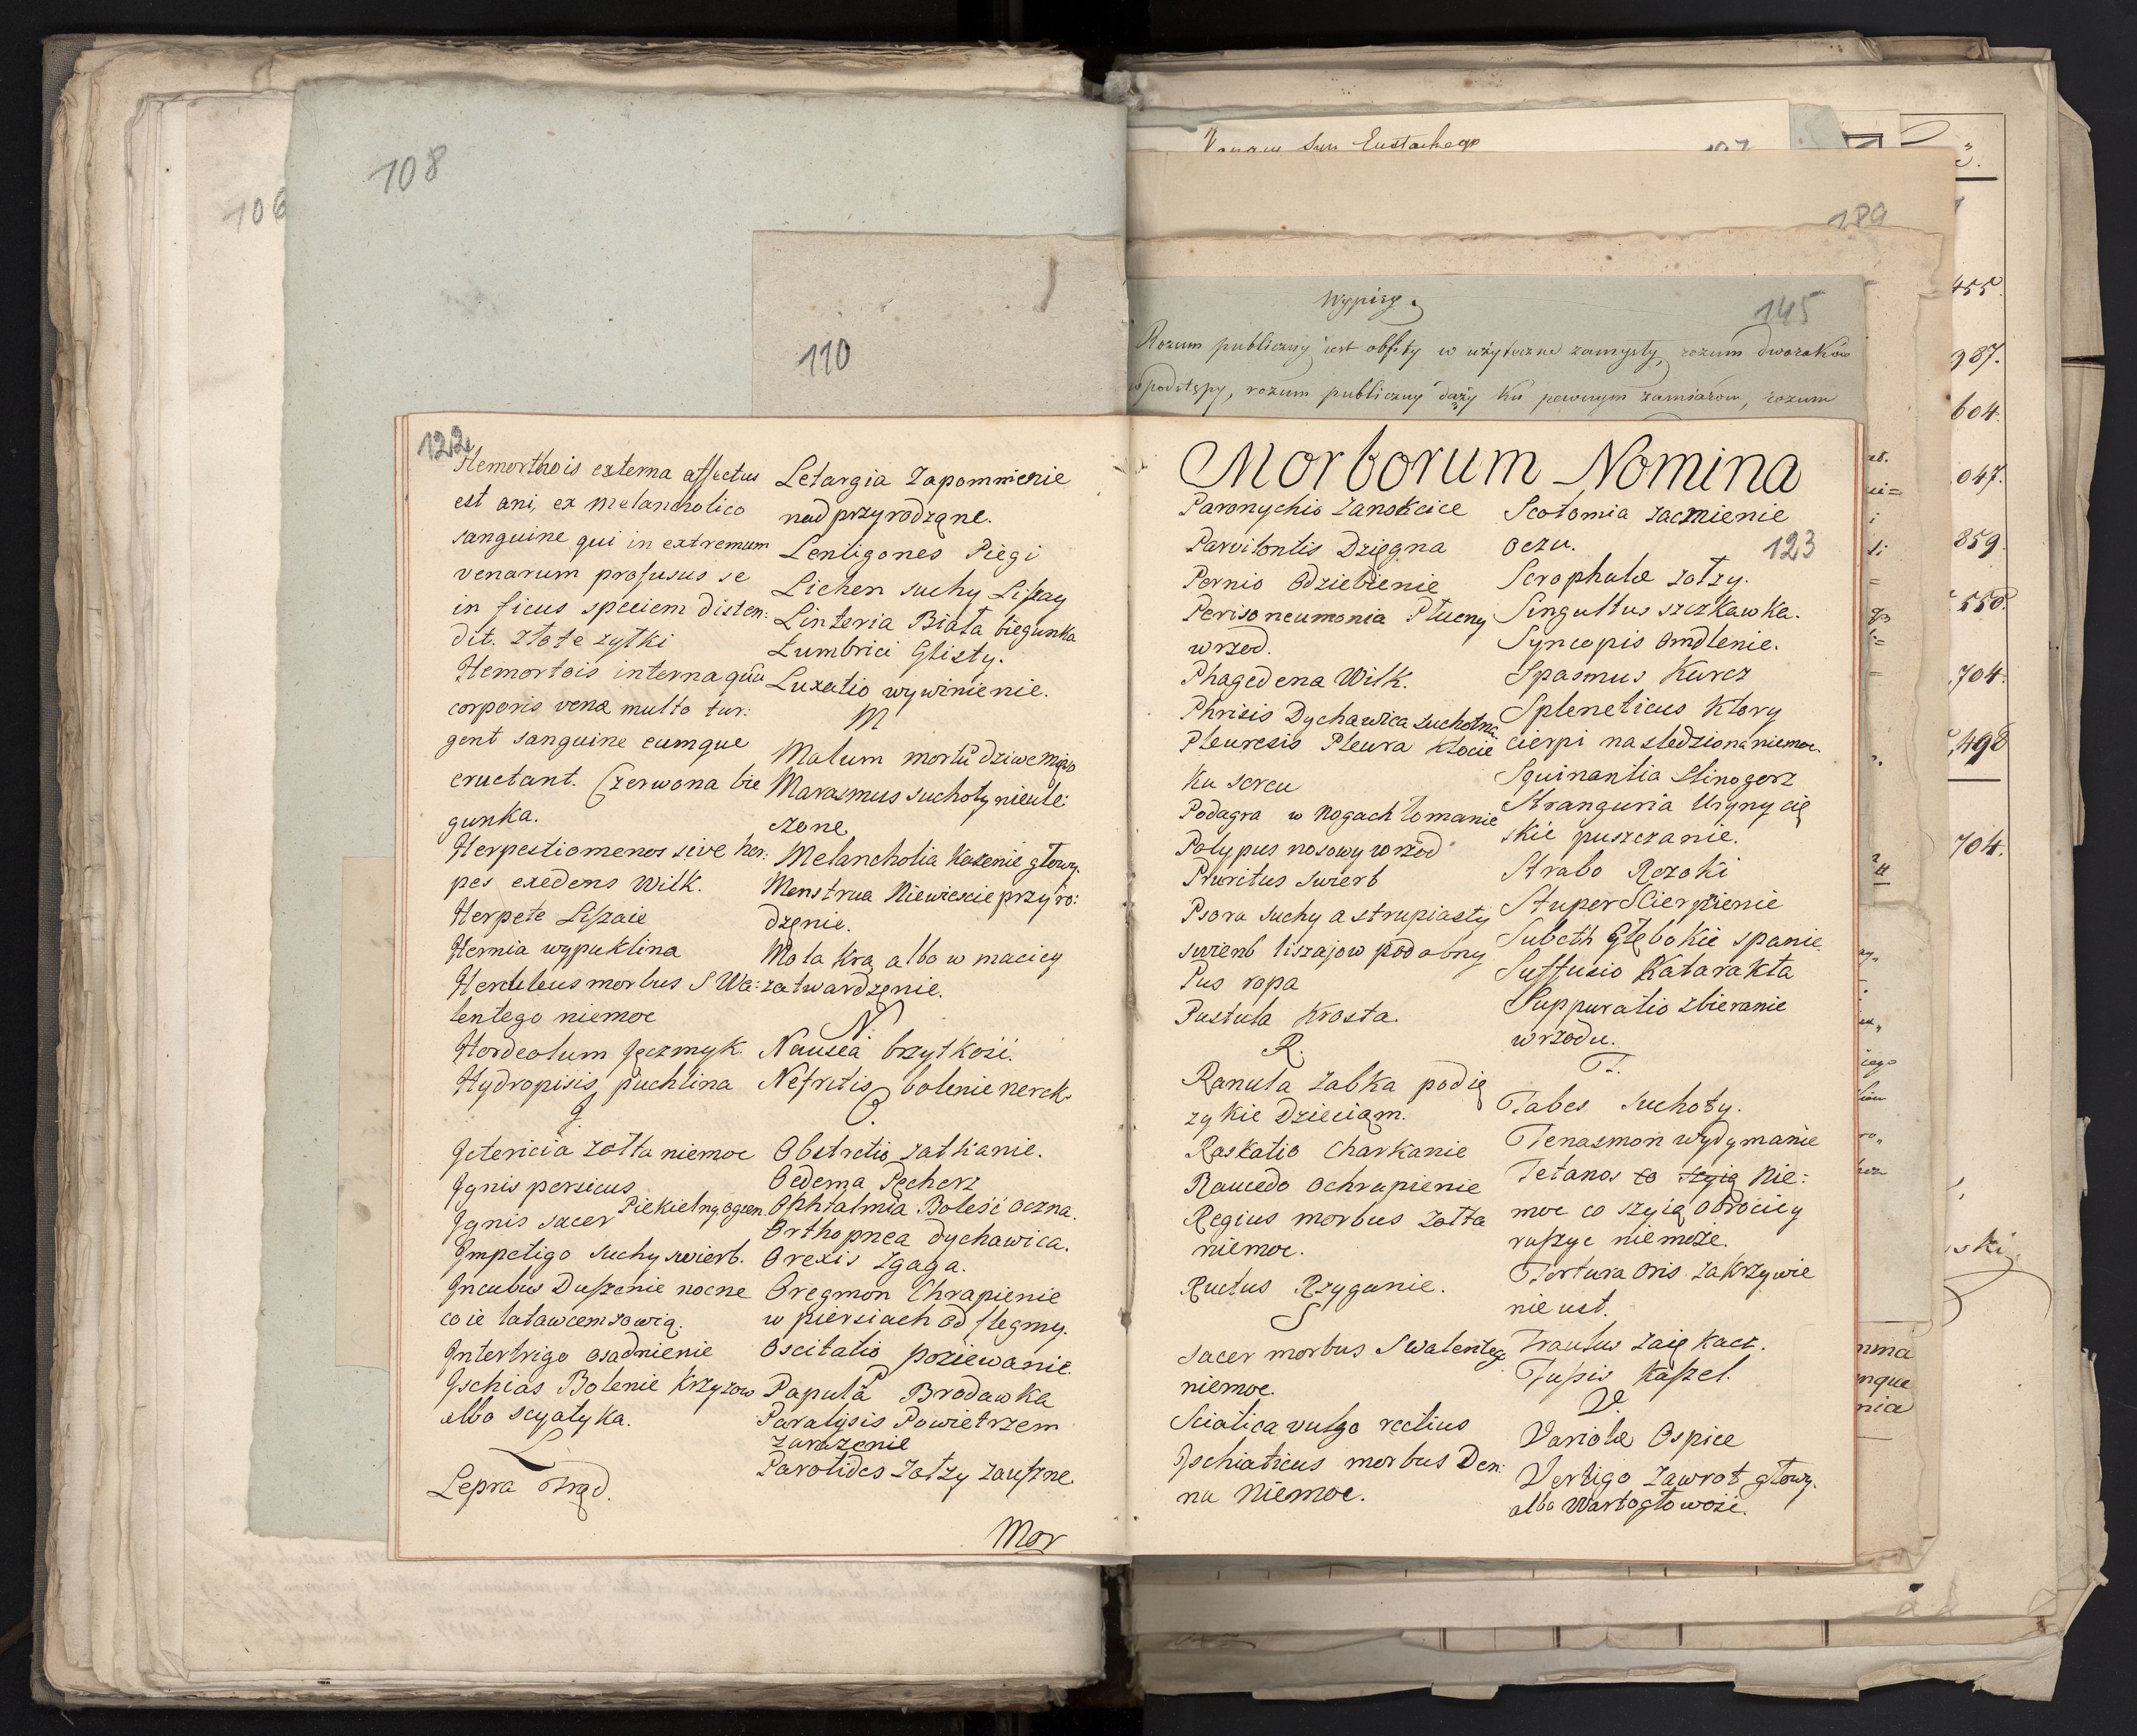 108
106
110
122
Hemorthois externa affectus
est ani, ex melancholico
sanguine qui in extremum
venarum profusus se
in ficus speciem disten:
dit. złote zyłki
Hemortois interna
corporis venæ multo tur:
gent sanguine eumque
eructant. Czerwona bie
gunka.
Herpestiomenos sive her:
pes exedens Wilk.
Herpete Liszaie
Hernia wypuklina
Herculeus morbus S Wa:
lentego niemoc
Hordeolum Jęczmyk.
Hydropisis puchlina
J.
Jctericia żółta niemoc
Jgnis persicus
Jgnis sacer Piekielny ogien.
Jmpetigo suchy swierb.
Jncubus Duszenie nocne
co ie latawcem zowią.
Jntertrigo osadnienie
Jschias Bolenie krzyzow
albo scyatyka.
L
Lepra Trąd.
Letargia Zapomnienie
nad przyrodząne.
Lentigones Piegi
Lichen suchy Liszay
Linteria Biała biegunka
Łumbrici Glisty.
Luxatio wywinienie.
M
Malum mortũ dziwe mięso
Marasmus suchoty nieule:
czone
Melancholia Każenie głowy.
Menstrua Niewiescie przyro:
dzęnie.
Mola kra albo w macicy
zatwardzęnie.
N.
Nausea brzytkość.
Nefritis bolenie nerek.
O.
Obstrctio zatkanie.
Oedema Pęcherz
Ophtalmia Boleść oczna.
Orthopnea dychawica.
Orexis Zgaga.
Oregmon Chrapienie
w piersiach od flegmy.
Oscitatio poziewanie.
P
Papula Brodawka
Paralijsis Powietrzem
zarażenie
Parotides Zołzy zauszne
Mor
Eustachego
107
189
Wypisy
145
Rozum publiczny jest obfity w użyteczne zamysły, rozum dworaków
w podstępy, rozum publiczny dąży ku pewnym zamiarom, rozum
Morborum Nomina
Paronychio Zanokcice
Parvitontis Dzięgna
Pernio odziebienie
Perisoneumonia Płucny
wrzod.
Phagedena Wilk.
Phrisis Dychawica suchotna
Pleuresis Pleura kłocie
ku sercu
Podagra w nogach łomanie
Polypus nosowy wrzod
Pruritus swierb
Psora suchy a strupiasty
swierb liszajow podobny
Pus ropa
Pustula Krosta.
R.
Ranula żabka podię
zykie Dzieciąm.
Raskatio Charkanie
Raucedo ochrapienie
Regius morbus żółta
niemoc.
Ructus Rzyganie.
S
Sacer morbus S Walentego
niemoc.
Sciatica vulgo rectius
Jschiaticus morbus Den:
na Niemoc.
Scotomia zacmienie
oczu.
123
Scrophulæ zołzy.
Singultus szczkawka.
Syncopis omdlenie.
Spasmus Kurcz
Spleneticus ktory
cierpi na sledzioną niemoc.
Squinantia slinogorz
Stranguria Uryny cię
skie puszczanie.
Strabo Rzoki
Stuper Scierpienie
Subeth Głębokie spanie
Suffusio Katarakta
Suppuratio zbieranie
wrzodu.
T.
Tabes suchoty.
Tenasmon wydymanie
Tetanos co szyią Nie:
moc co szyią obrociey
ruszyc niemoże.
Tortura oris zakrzywie
nie ust.
Traulus zaięKacz.
Tussis Kaszel.
V.
Variolæ Ospice
Vertigo Zawrot głowy.
albo Wartogłowość.
455.
987.
604.
047.
859.
550.
704.
498
704.